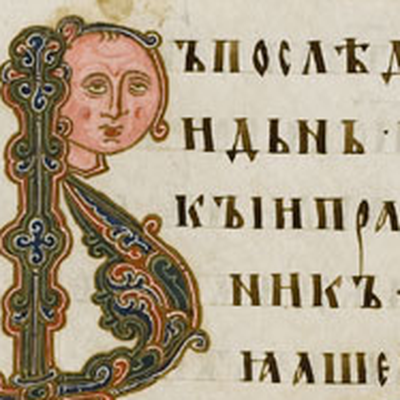 Въпослѣд
ндьнь ·
къіипра
ꙁникъ ·
ꙗаше